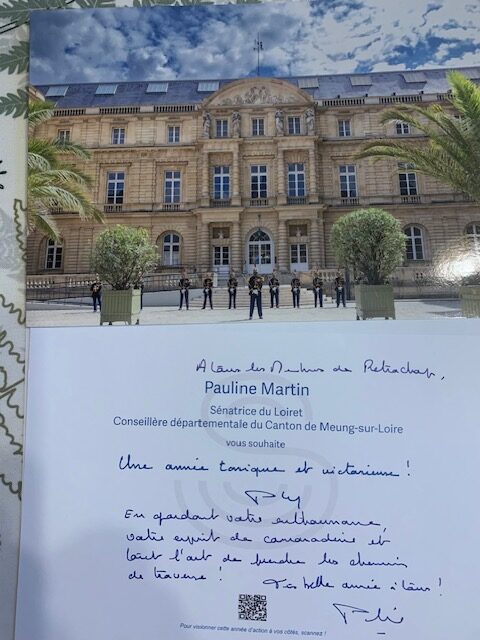 A tous les Membres de Retrochap,
Pauline Martin
Sénatrice du Loiret
Conseillère départementale du Canton de Meung-sur-Loire
vous souhaite
Une année tonique et victorieuse !
En gardant votre enthousiasme,
votre esprit de camaraderie et
tout l'art de prendre les chemins
de traverse ! Très belle année à tous !
Pour visionner cette année d'action à vos côtés, scannez !